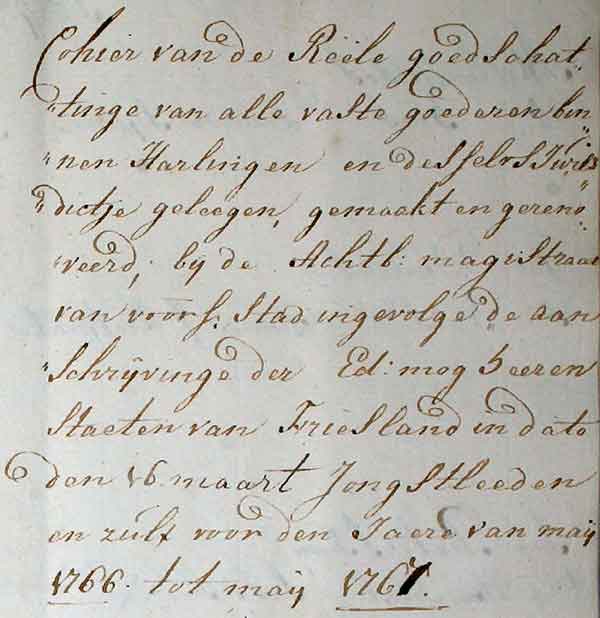 Cohier van de Reële goedschat„
„tinge van alle vaste goederen bin„
„nen Harlingen en desselvs Juris„
„dictje geleegen, gemaekt en gereno„
veerd, bij de Achtb: magistraat
van voors: Stad ingevolge de aan„
„schrijvinge der Ed: mog heeren
Staeten van Friesland in dato
den 16 maart Jongstleeden
en zulx voor den Jaere van maij
1766. tot maij 1767.